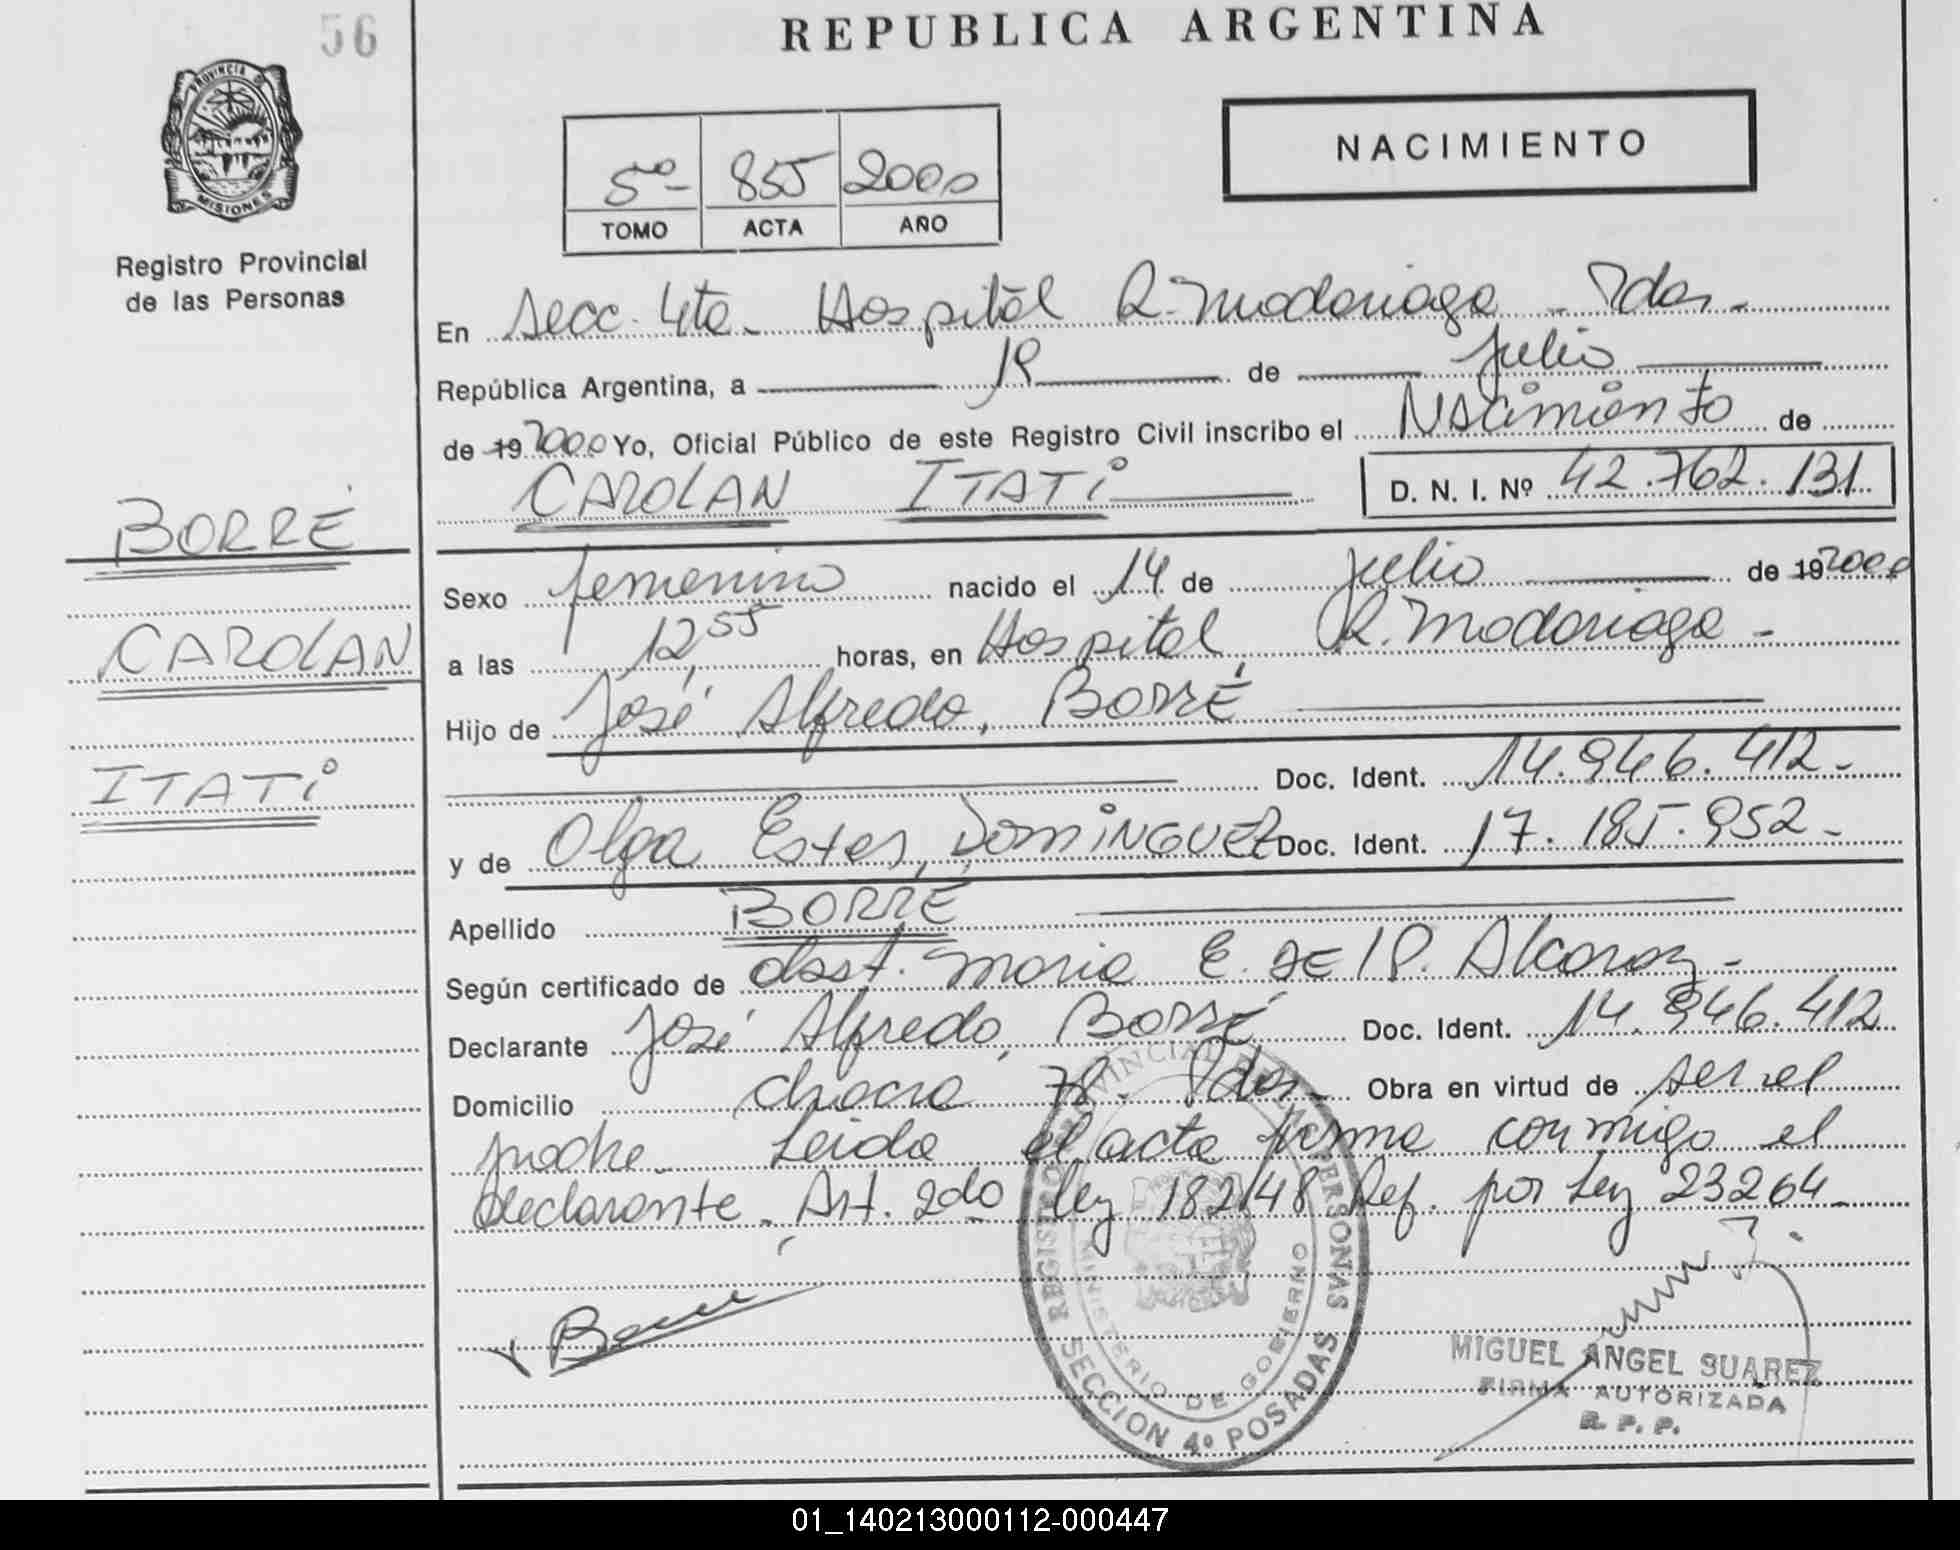 56
REPUBLICA ARGENTINA
PROVINCIA DE
MISIONES
Registro Provincial
de las Personas
5º 855 2000
TOMO ACTA AÑO
NACIMIENTO
En Secc. 4ta. Hospital R. Madariaga - Pdas -
República Argentina, a 19 de Julio
de 19 2000 Yo, Oficial Público de este Registro Civil inscribo el Nacimiento de
CAROLAN ITATÍ D. N. I. Nº 42.762.131
BORRÉ
CAROLAN
ITATÍ
Sexo femenino nacido el 14 de Julio de 19 2000
a las 12,55 horas, en Hospital R. Madariaga -
Hijo de José Alfredo, BORRÉ
Doc. Ident. 14.946.412 -
y de Olga Ester, DOMINGUEZ Doc. Ident. 17.185.952 -
Apellido BORRÉ
Según certificado de obst. Maria E. DE P. Alcaraz -
Declarante José Alfredo, BORRÉ Doc. Ident. 14.946.412
Domicilio chacra 78. Pdas - Obra en virtud de ser el
padre - Leida el acta firma conmigo el
declarante. Art. 2do Ley 18248 Ref. por Ley 23264 -
REGISTRO PROVINCIAL DE LAS PERSONAS
MINISTERIO DE GOBIERNO
SECCION 4º POSADAS
MIGUEL ANGEL SUAREZ
FIRMA AUTORIZADA
R. P. P.
01_140213000112-000447